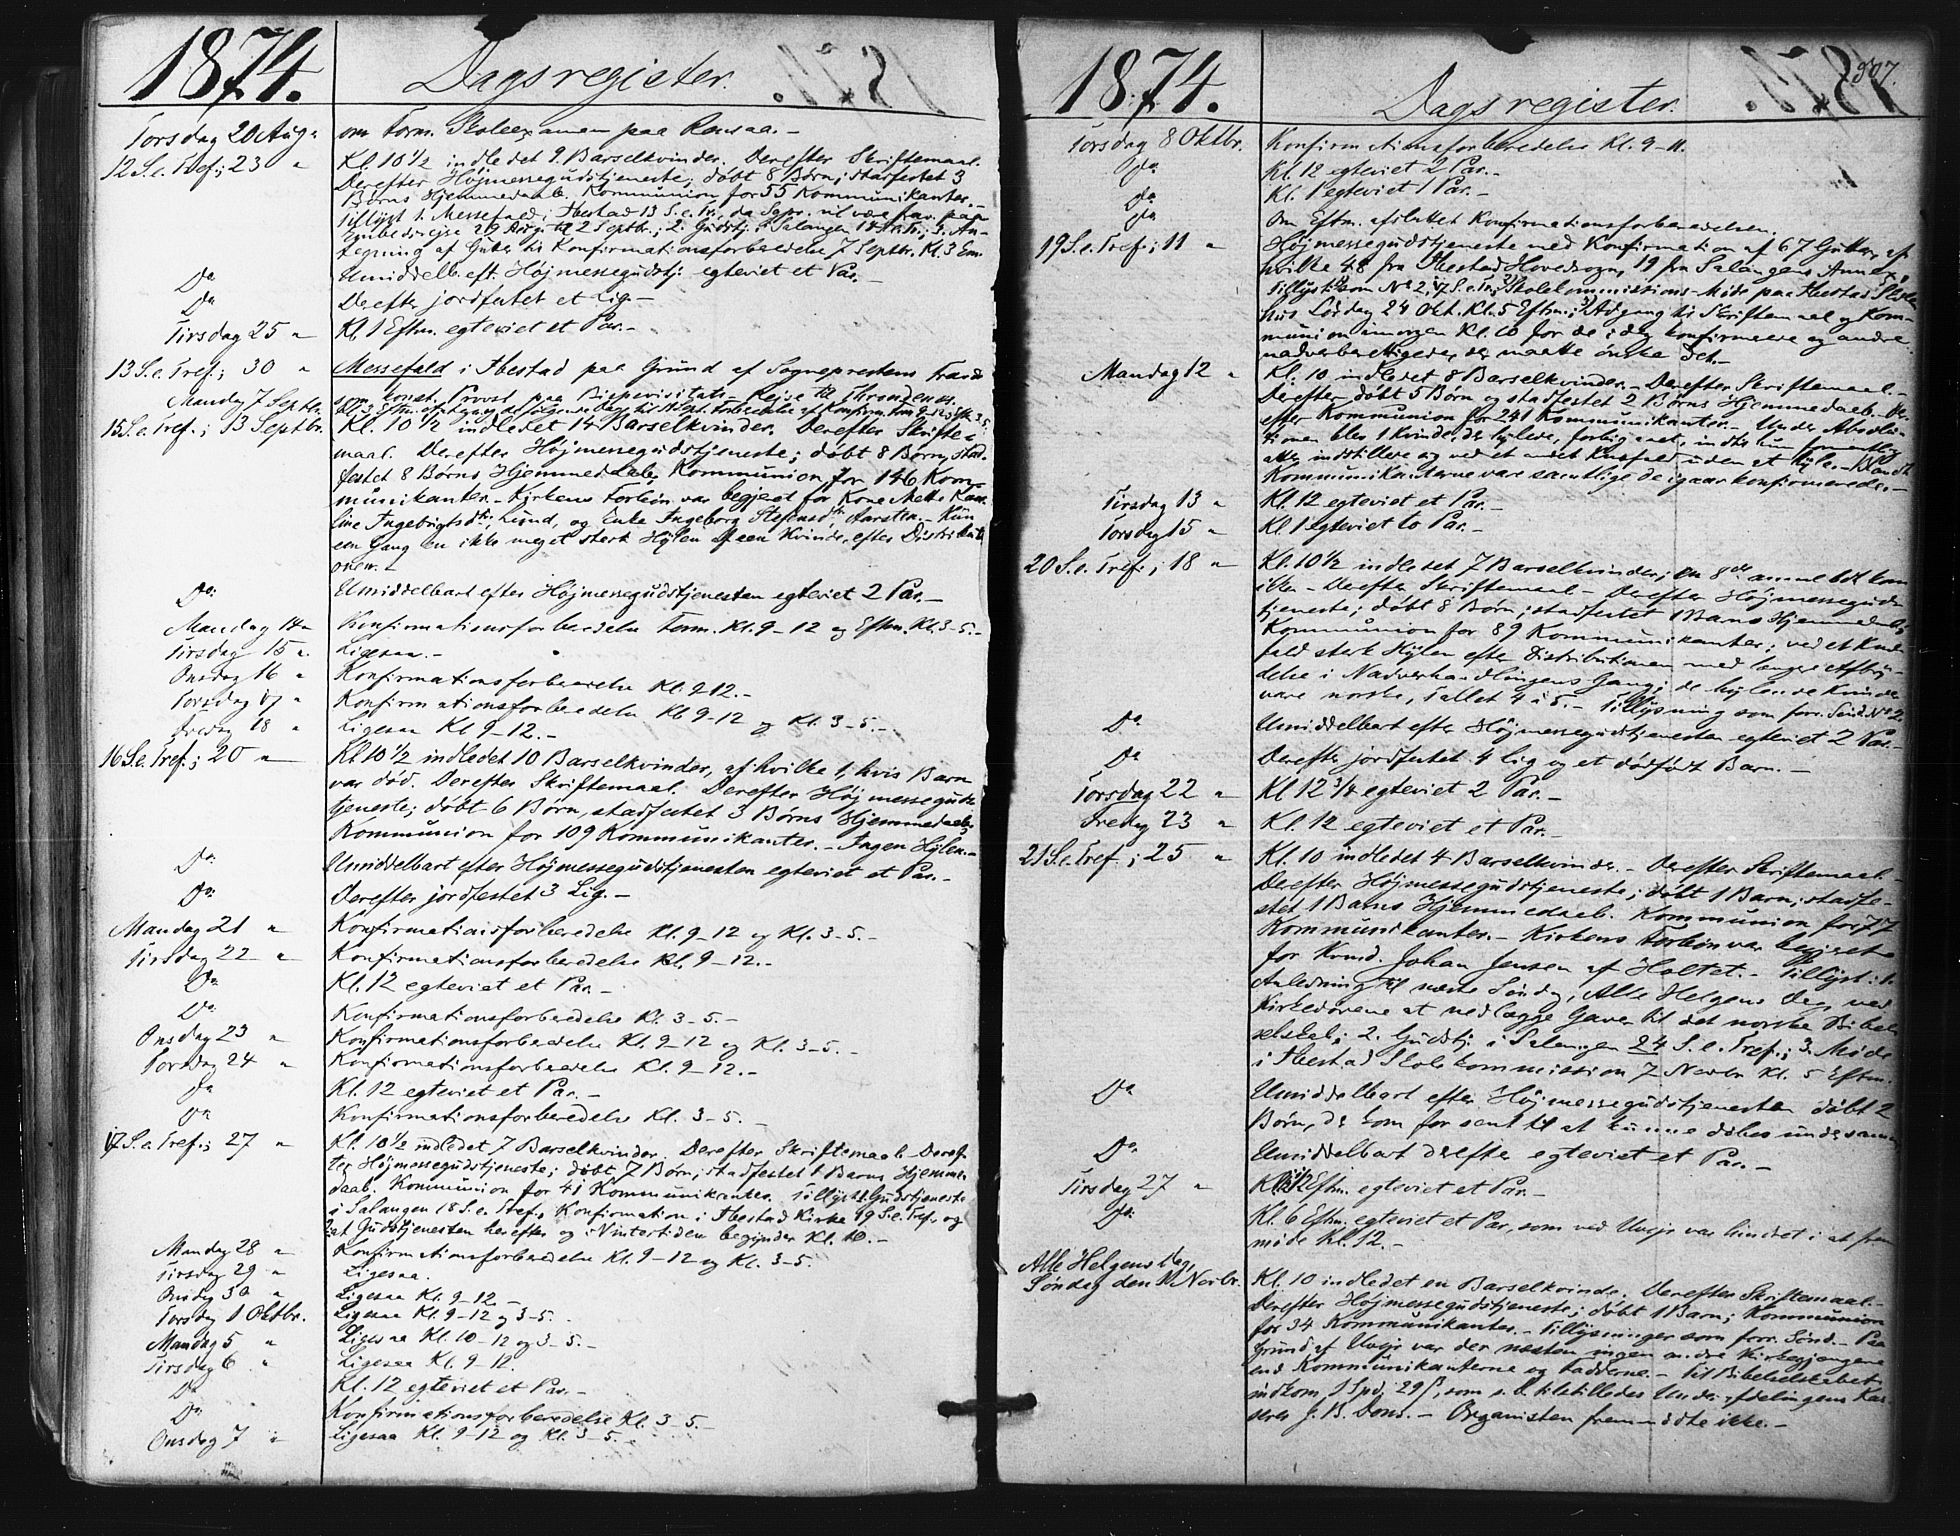 1874. Dagsregister.
Torsdag 20 Aug. om Form. Skoleexamen paa
12 S. e. Tref.; 23 " Kl. 10 1/2 indledet 9 Barselkvinder. Derefter Skriftemaal.
Derefter Højmessegudstjeneste; døbt 8 Børn; stadfestet 3
Børns Hjemmedaab. Kommunion for 55 Kommunikanter.
Tillyst 1. Messefald i Ibestad 13 S. e. Tr., da Sgpr. vil være frav. paa
Embedsrejse 29 Aug. til 2 Septbr.; 2. Gudstj. i Salangen 14 S. e. Tr.; 3. An-
tegning af Gutter til Konfirmationsforberedelse 7 Septbr. Kl. 3 Em.
Do Umiddelb. eft. Højmessegudstj. egteviet et Par.
Do Derefter jordfestet et Lig.
Tirsdag 25 " Kl. 1 Eftm. egteviet et Par.
13 S. e. Tref.; 30 " Messefald i Ibestad paa Grund af Sogneprestens
som konst. Provst paa Bispevisitats-Rejse til
Mandag 7 Septbr. Kl. 3 Eftm.
15 S. e. Tref.; 13 Septbr. Kl. 10 1/2 indledet 14 Barselkvinder. Derefter Skrifte-
maal. Derefter Højmessegudstjeneste; døbt 8 Børn, stad-
festet 8 Børns Hjemmedaab, Kommunion for 146 Kom-
munikanter. Kirkens Forbøn var begjert for Kone Mette Karo-
line Ingebrigtsdtr, Lund, og Enke Ingeborg Steffensdtr, Aarsten. Kun
een Gang en ikke meget sterk Hylen af een Kvinde, efter Distributi-
onen.
Do Umiddelbart efter Højmessegudstjenesten egteviet 2 Par.
Mandag 14 " Konfirmationsforberedelse Form. Kl. 9-12 og Eftm. Kl. 3-5.
Tirsdag 15 " Ligesaa.
Onsdag 16 " Konfirmationsforberedelse Kl. 9-12.
Torsdag 17 " Konfirmationsforberedelse Kl. 9-12 og Kl. 3-5.
Fredag 18 " Ligesaa Kl. 9-12.
16 S. e. Tref.; 20 " Kl. 10 1/2 indledet 10 Barselkvinder, af hvilke 1, hvis Barn
var død. Derefter Skriftemaal. Derefter Højmessegud-
tjeneste; døbt 6 Børn, stadfestet 3 Børns Hjemmedaab;
Kommunion for 109 Kommunikanter. Ingen Hylen.
Do Umiddelbart efter Højmessegudstjenesten egteviet et Par.
Do Derefter jordfestet 3 Lig.
Mandag 21 " Konfirmationsforberedelse Kl. 9-12 og Kl. 3-5.
Tirsdag 22 " Konfirmationsforberedelse Kl. 9-12.
Do Kl. 12 egteviet et Par.
Do Konfirmationsforberedelse Kl. 3-5.
Onsdag 23 " Konfirmationsforberedelse Kl. 9-12 og Kl. 3-5.
Torsdag 24 " Konfirmationsforberedelse Kl. 9-12.
Do Kl. 12 egteviet et Par.
Do Konfirmationsforberedelse Kl. 3-5.
17 S. e. Tref.; 27 " Kl. 10 1/2 indledet 7 Barselkvinder. Derefter Skriftemaal. Deref-
ter Højmessegudstjeneste; døbt 7 Børn; stadfestet 1 Barns Hjemme-
daab. Kommunion for 41 Kommunikanter. Tillyst 1. Gudstjeneste
i Salangen 18 S. e. Tref., Konfirmation i Ibestad Kirke 19 S. e. Tref. og
2. at Gudstjenesten herefter og i Vintertiden begynder Kl. 10.
Mandag 28 " Konfirmationsforberedelse Kl. 9-12 og Kl. 3-5.
Tirsdag 29 " Ligesaa.
Onsdag 30 " Ligesaa Kl. 9-12.
Torsdag 1 Oktbr. Ligesaa Kl. 9-12 og 3-5.
Mandag 5 " Ligesaa Kl. 10-12 og 3-5.
Tirsdag 6 " Ligesaa Kl. 9-12.
Do Kl. 12 egteviet et Par.
Do Konfirmationsforberedelse Kl. 3-5.
Onsdag 7 " Ligesaa Kl. 9-12 og Kl. 3-5.
1874. Dagsregister. 507.
Torsdag 8 Oktbr. Konfirmationsforberedelse Kl. 9-11.
Do Kl. 12 egteviet 2 Par.
Do Kl. 1 egteviet 1 Par.
Do Om Eftm. afsluttet Konfirmationsforberedelsen.
19 S. e. Tref.; 11 " Højmessegudstjeneste med Konfirmation af 67 Gutter, af
hvilke 48 fra Ibestad Hovedsogn, 19 fra Salangens Annex.
Tillyst: 1) som No 2, 17 S. e. Tr.; 2) Skolekommissions-Møde paa Ibestad Skole-
hus Lørdag 24 Okt. Kl. 5 Eftm.; 3) Adgang til Skriftemaal og Kom-
munion imorgen Kl. 10 for de i dag konfirmerede og andre
nadverberettigede, der maatte ønske det.
Mandag 12 " Kl. 10 indledet 8 Barselkvinder. Derefter Skriftemaal.
Derefter døbt 5 Børn og stadfestet 2 Børns Hjemmedaab. Der-
efter Kommunion for 241 Kommunikanter. Under Absolu-
tionen blev 1 Kvinde, der hylede, forbigaaet, indtil hun
atter indstillede sig ved et andet Knefald uden at hyle. Blandt
Kommunikanterne vare samtlige de igaar konfirmerede.
Tirsdag 13 " Kl. 12 egteviet et Par.
Torsdag 15 " Kl. 1 egteviet to Par.
20 S. e. Tref.; 18 " Kl. 10 1/2 indledet 7 Barselkvinder; en 8de anmeldt kom
ikke. Derefter Skriftemaal. Derefter Højmesseguds-
tjeneste; døbt 8 Børn; stadfestet 1 Barns Hjemmedaab;
Kommunion for 89 Kommunikanter; ved et Kne-
fald sterk Hylen efter Distributionen med lengere Afbry-
delse i Nadverhandlingens Gang; de hylende Kvinder
vare norske, Tallet 4 à 5. Tillysning som forr. Sønd. No 2.
Do Umiddelbart efter Højmessegudstjenesten egteviet 2 Par.
Do Derefter jordfestet 4 Lig og et dødfødt Barn.
Torsdag 22 " Kl. 12 3/4 egteviet 2 Par.
Fredag 23 " Kl. 12 egteviet et Par.
21 S. e. Tref.; 25 " Kl. 10 indledet 4 Barselkvinder. Derefter Skriftemaal.
Derefter Højmessegudstjeneste; døbt 1 Barn; stadfe-
stet 1 Barns Hjemmedaab. Kommunion for 77
Kommunikanter. Kirkens Forbøn var begjert
for Kvmd. Johan Jensen af Holtet. Tillyst: 1.
Anledning til næste Søndag, Alle Helgens Dag, ved
Kirkedørene at nedlegge Gaver til det norske Bibel-
selskab; 2. Gudstj. i Salangen 24 S. e. Tref.; 3. Møde
i Ibestad Skolekommission 7 Novbr. Kl. 5 Eftm.
Do Umiddelbart efter Højmessegudstjenesten døbt 2
Børn, der kom for sent til at kunne døbes under samme.
Do Umiddelbart derefter egteviet et Par.
Tirsdag 27 " Kl. Eftm. egteviet et Par.
Do Kl. 6 Eftm. egteviet et Par, som ved Uvejr var hindret i at frem-
møde Kl. 12.
Alle Helgens Dag,
Søndag den 1 Novbr. Kl. 10 indledet en Barselkvinde. Derefter Skriftemaal.
Derefter Højmessegudstjeneste; døbt 1 Barn; Kommunion
for 34 Kommunikanter. Tillysninger som forr. Sønd. Paa
Grund af Uvejr var der næsten ingen andre Kirkegjengere
end Kommunikanterne og Fadderne. Til Bibelselskabet
indkom 1 Spd. 29 ß, som s. D. tilstilledes Underafdelingens Kas-
serer J. B. Dons. Organisten fremmødte ikke.